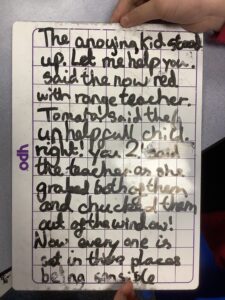 The anoying kid stood
up. Let me help you.
said the now red
with range teacher.
Tomato! said the
unhelpfull child.
right! You 2! said
the teacher as she
grabed both of them
and chucked them
out of the window!
Now every one is
sat in there places
being sensible